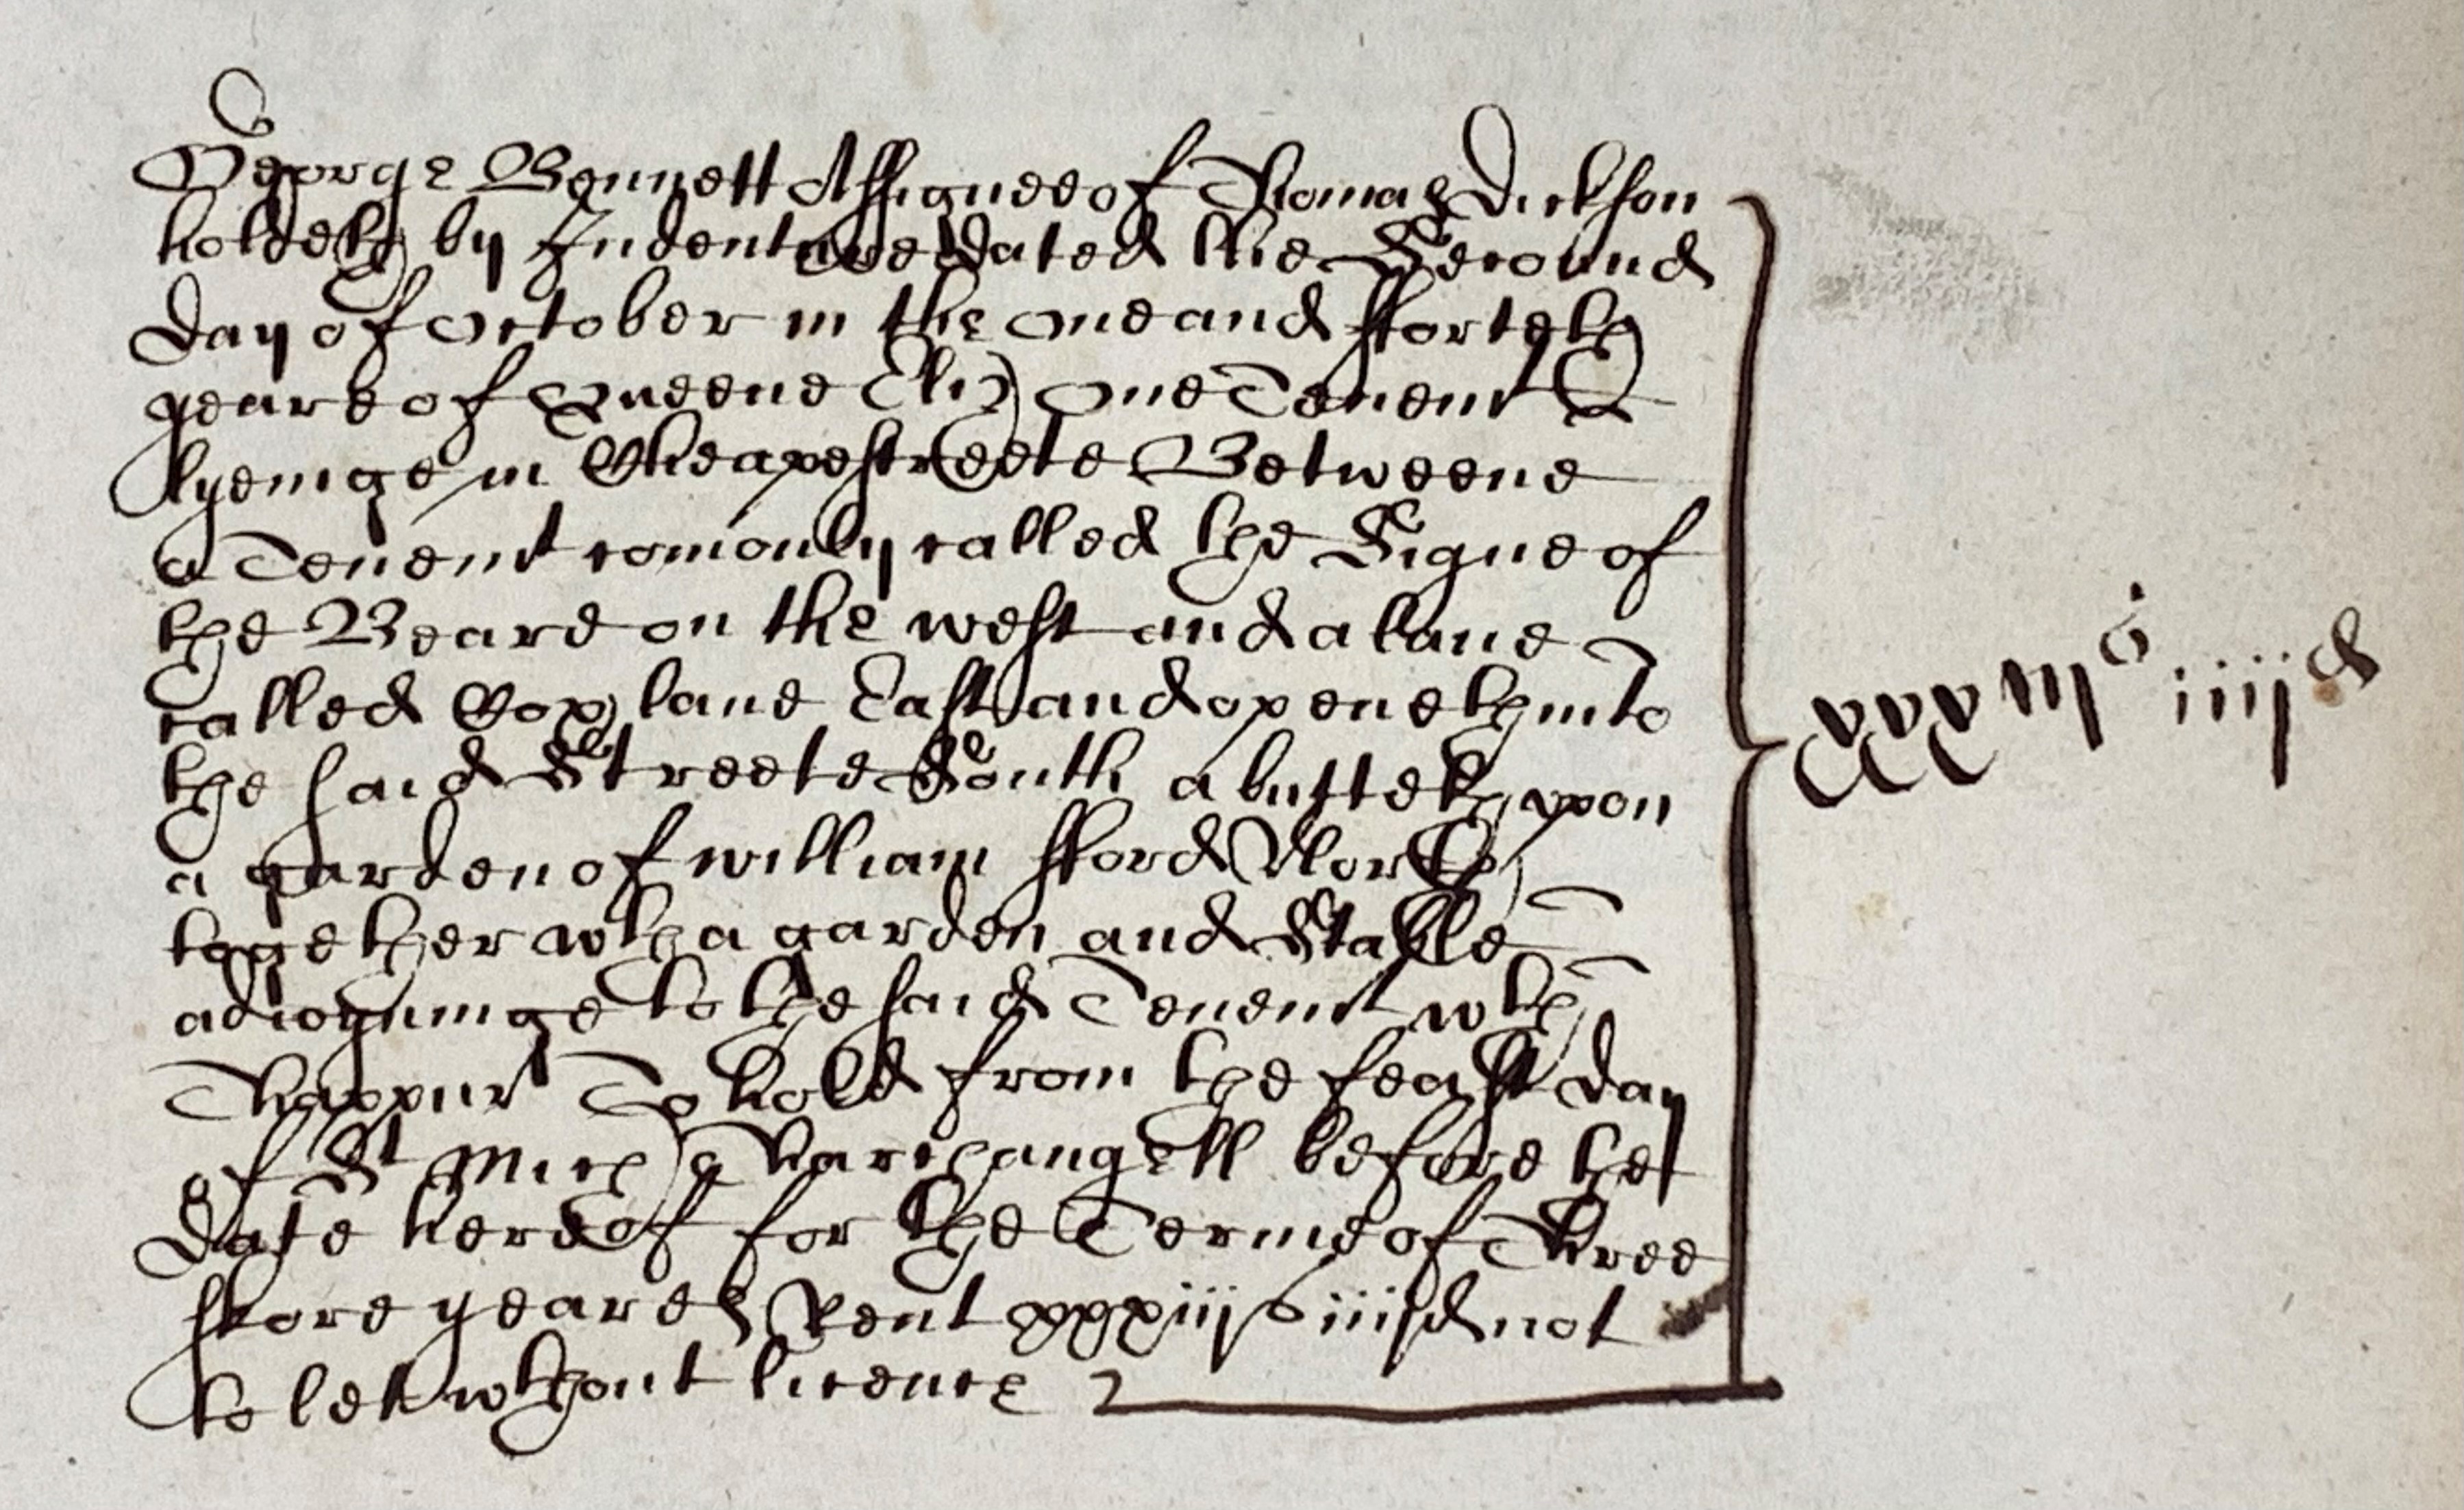 George Bennett Assignee of Thomas Dickson
holdeth by Indenture dated the Secound
day of October in the one and fforteth
yeare of Queene Eliz one Tenemt
lyeinge in Cheapestreete Betweene
a Tenemt comonly called the Signe of
the Beare on the west and a lane
called Cox lane East and openeth into
the said Streete South abutteth vpon
a garden of william fford North
together wth a garden and Stable
adioyninge to the said Tenemt wth
Thappur To hold from the feast day
of St Mich Tharchangell before the
date hereof for the Terme of Three
skore yeares Rent xxxiijs iiijd not
to let wthout licence
xxxiijs iiijd